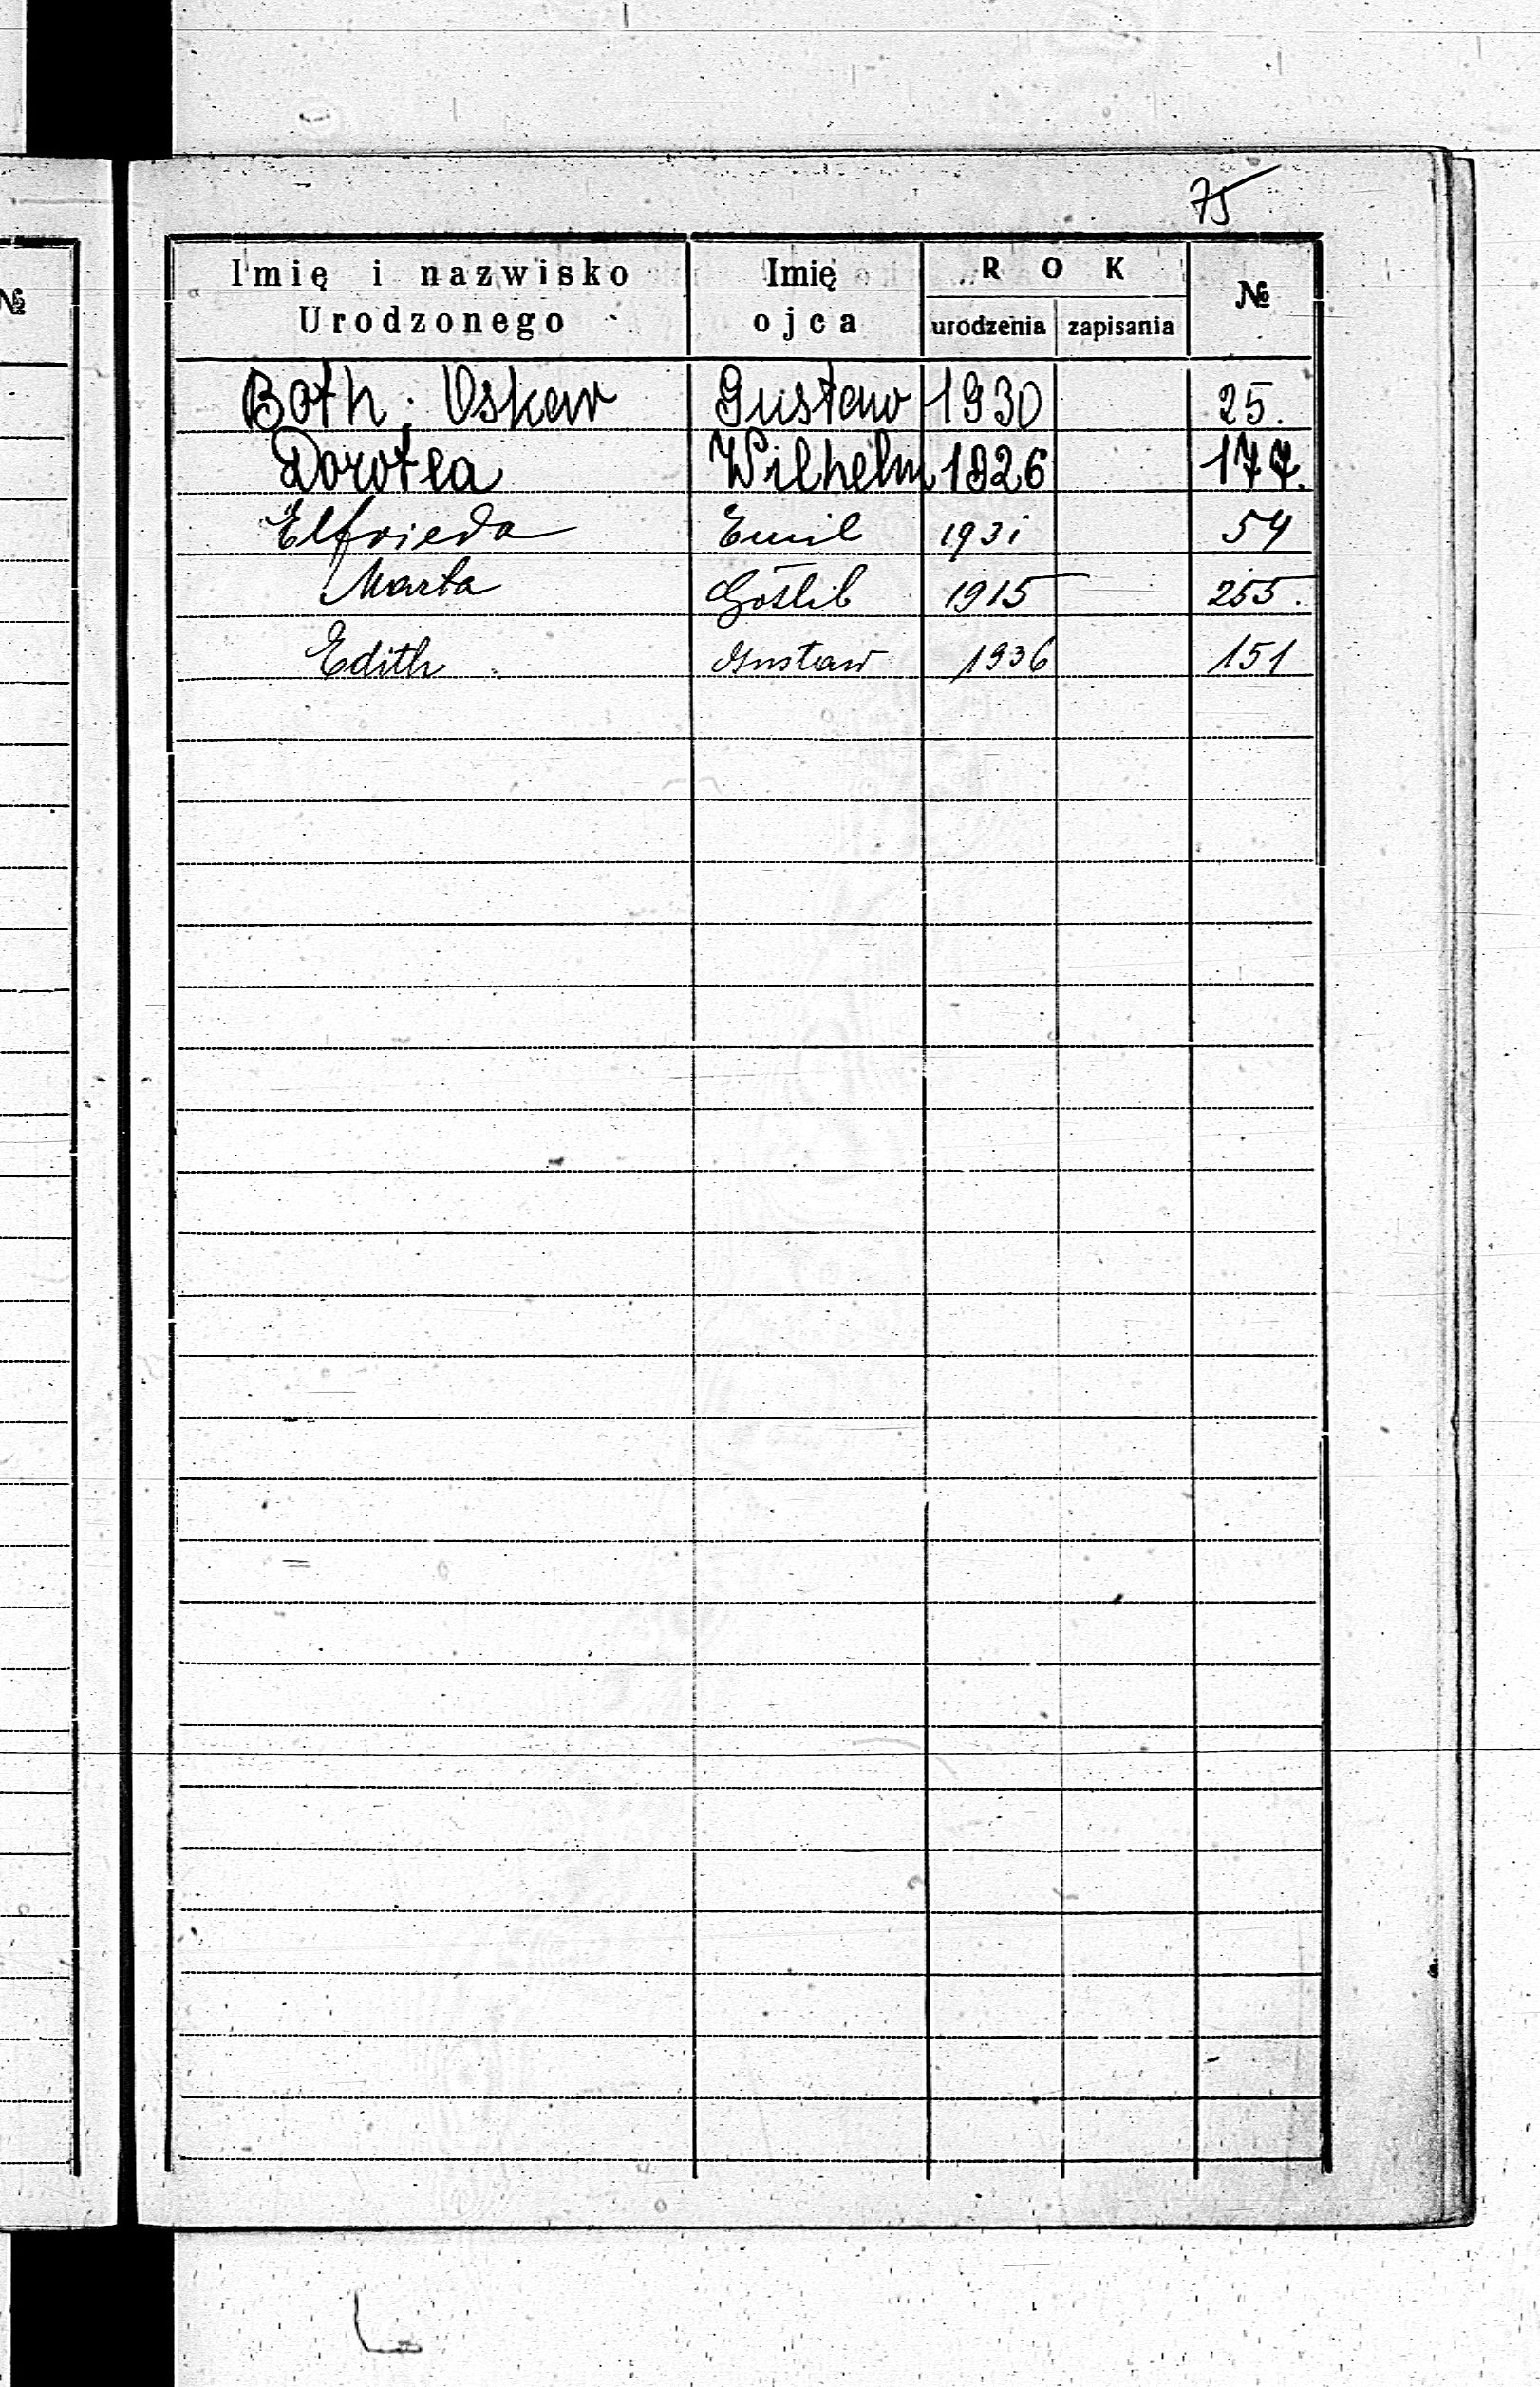 75
Imię i nazwisko Urodzonego Imię ojca ROK urodzenia zapisania №
№
Both. Oskar Gustaw 1930 25.
Dorotea Wilhelm 1926 177.
Elfrieda Emil 1931 54
Marta Gotlib 1915 255.
Edith Gustaw 1936 151